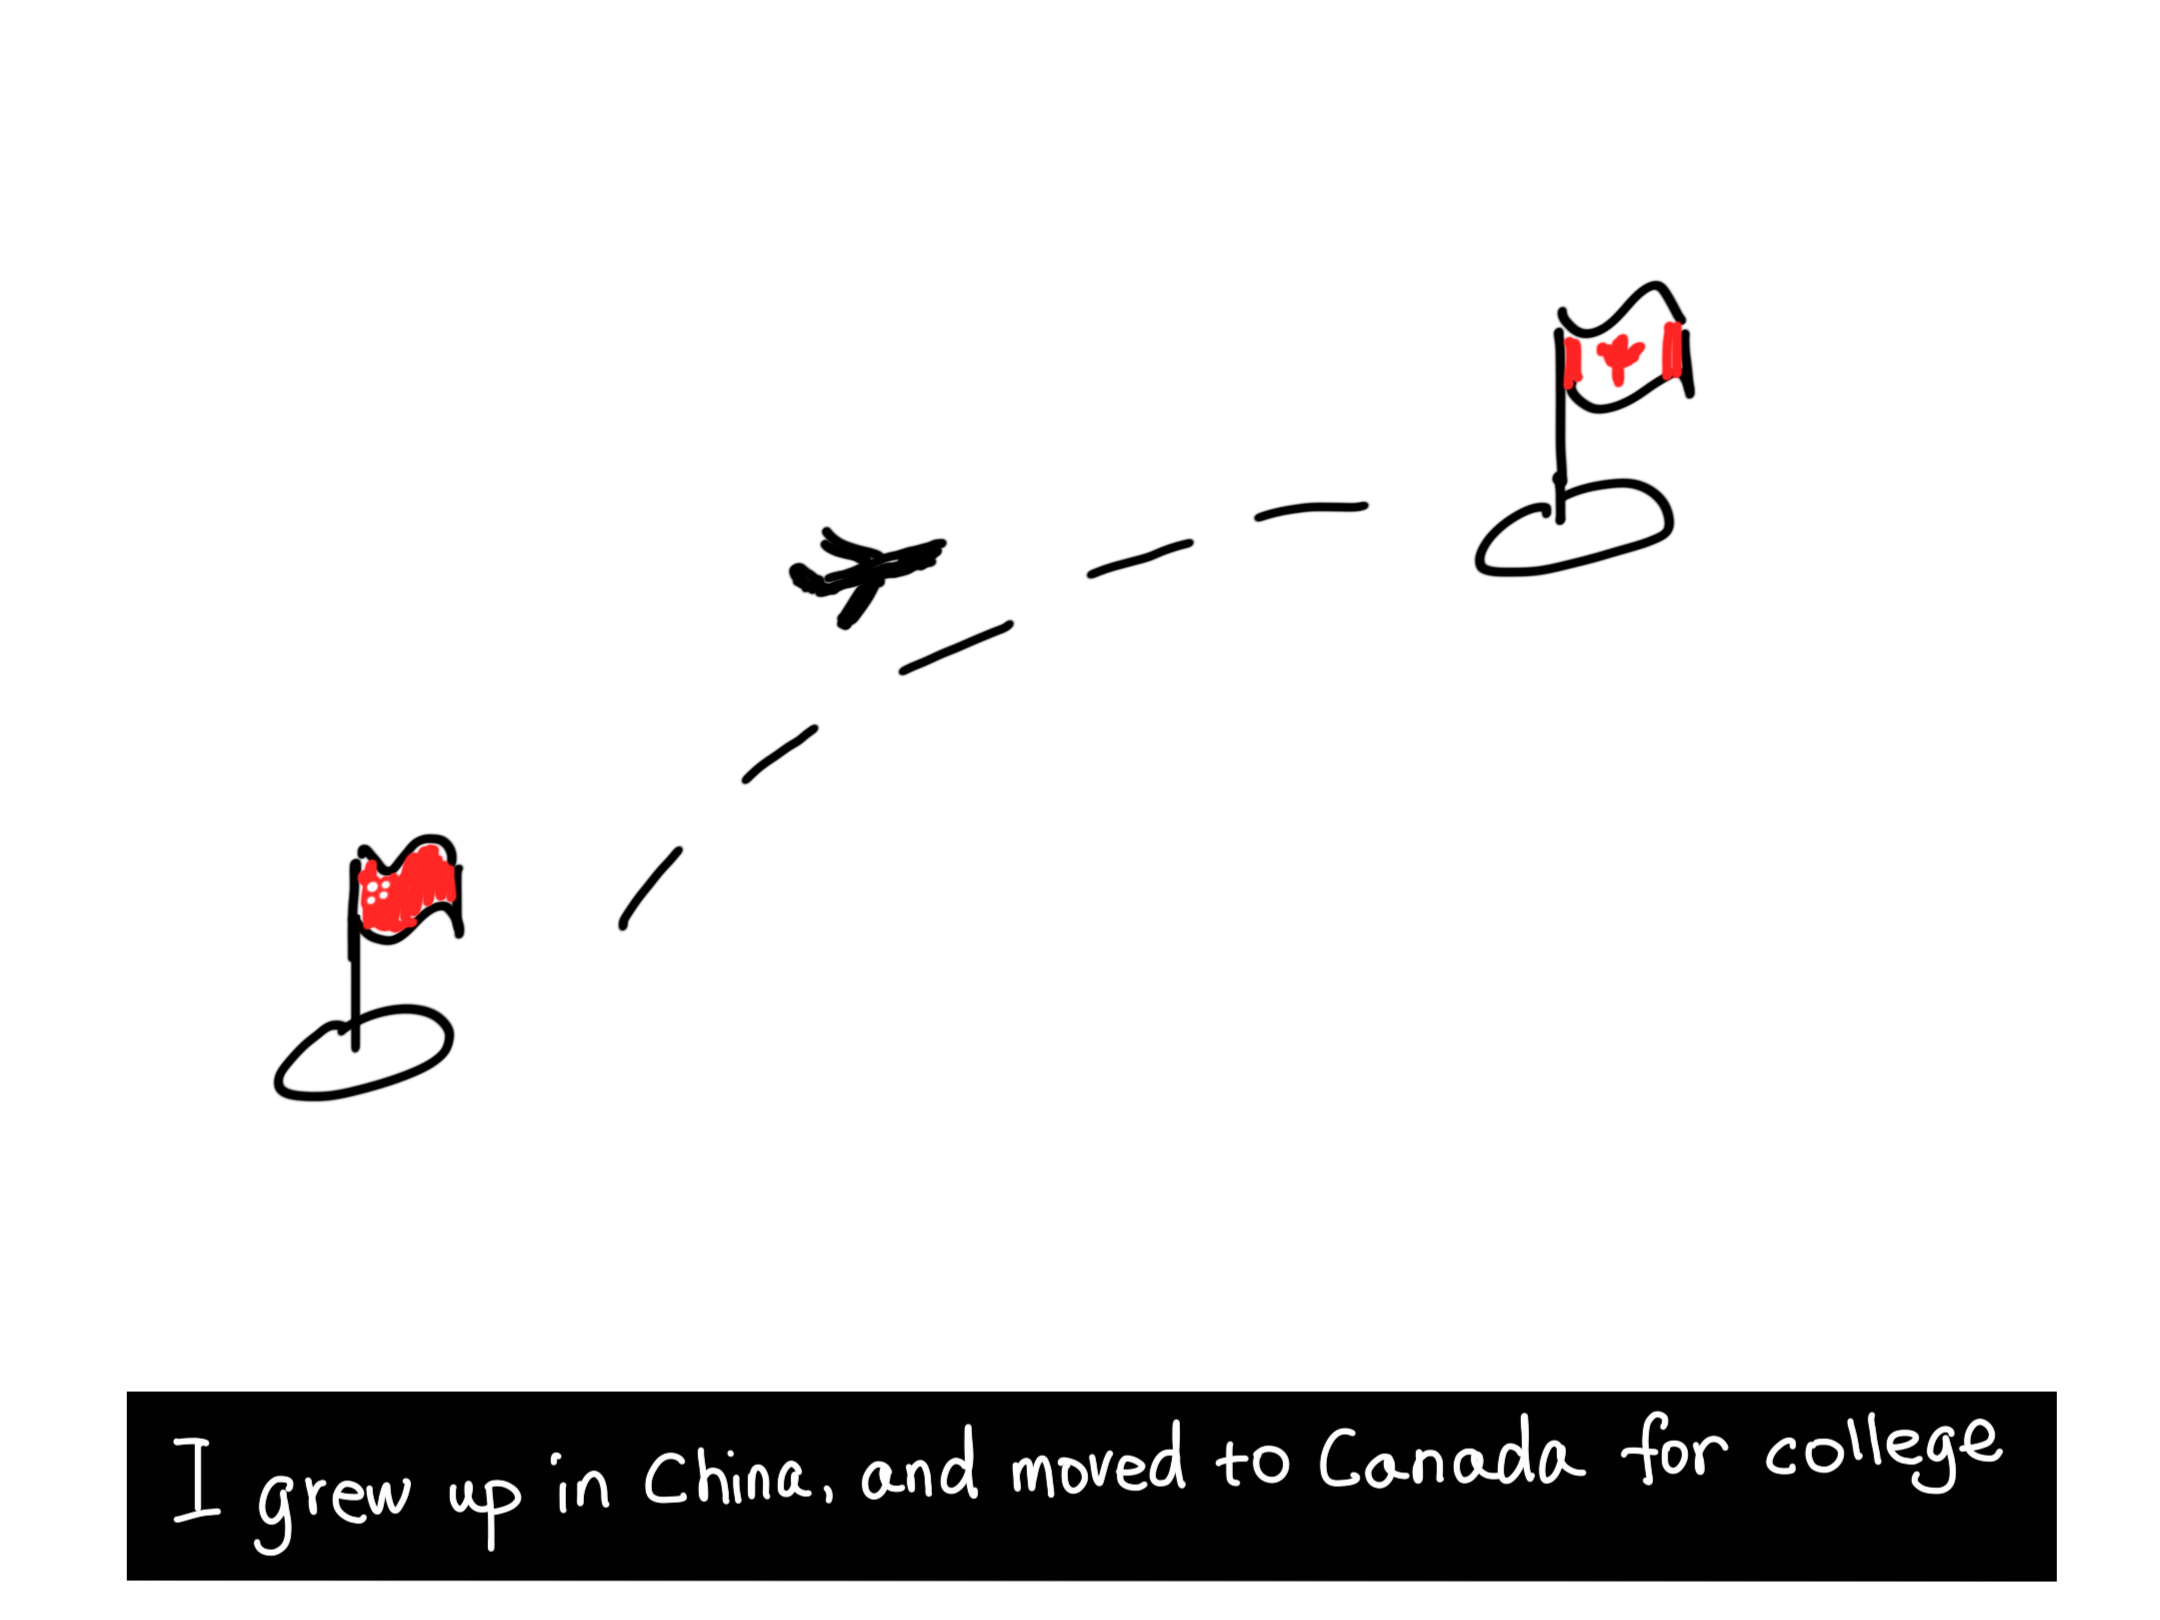 I grew up in China, and moved to Canada for college